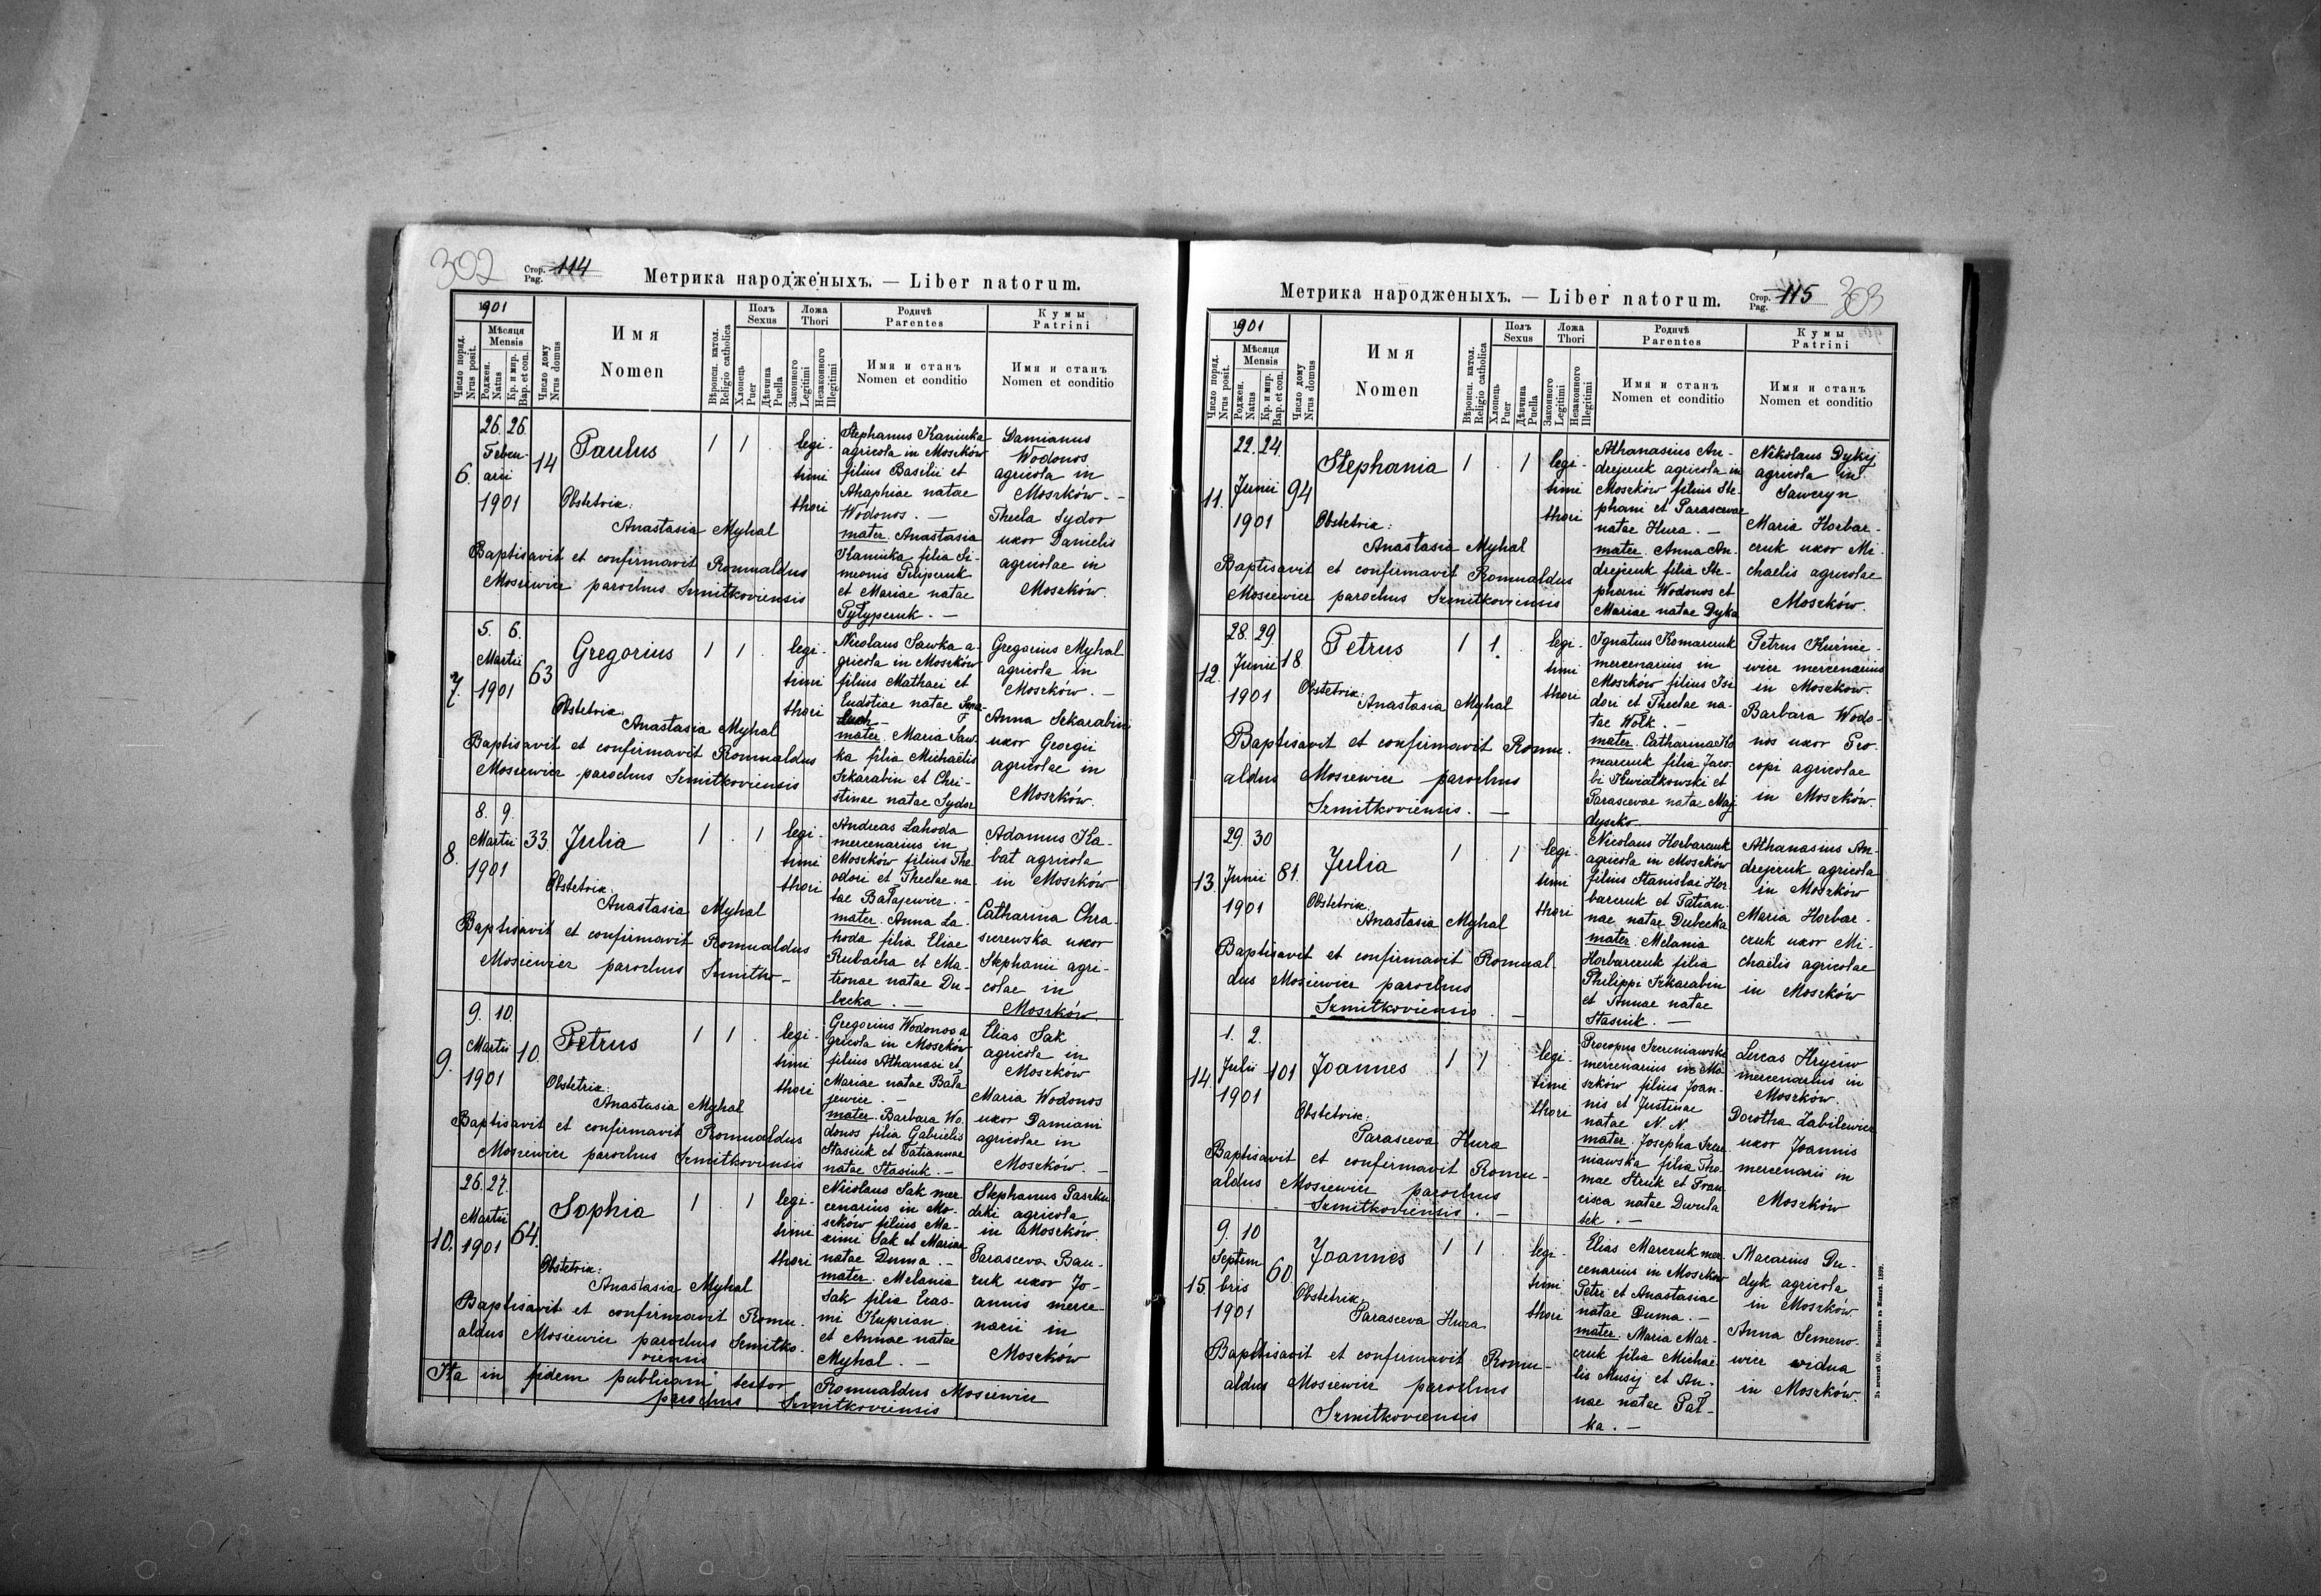 302
Стор. Pag. 114
Метрика народженыхъ. — Liber natorum.
1901
Число поряд. Nrus posit.
Мѣсяця Mensis
Роджен. Natus
Кр. и мир. Bap. et con.
Число дому Nrus domus
Имя
Nomen
Вѣроисп. катол. Religio catholica
Полъ Sexus
Хлопець Puer
Дѣвчина Puella
Ложа Thori
Законного Legitimi
Незаконного Illegitimi
Родичѣ
Parentes
Имя и станъ
Nomen et conditio
Кумы
Patrini
Имя и станъ
Nomen et conditio
6.
26. 26.
Februarii
1901
14
Paulus
1 1 .
legi-
timi
thori
Obstetrix:
Anastasia Myhal
Baptisavit et confirmavit Romualdus
Mosiewicz parochus Szmitkoviensis
Stephanus Kaniuka
agricola in Moszków
filius Basilii et
Ahaphiae natae
Wodonos. —
mater. Anastasia
Kaniuka filia Si-
meonis Pilipczuk
et Mariae natae
Pylypczuk. —
Damianus
Wodonos
agricola in
Moszków. -
Thecla Sydor
uxor Danielis
agricolae in
Moszków.
7.
5. 6.
Martii
1901
63
Gregorius
1 1 .
legi-
timi
thori
Obstetrix:
Anastasia Myhal
Baptisavit et confirmavit Romualdus
Mosiewicz parochus Szmitkoviensis
Nicolaus Sawka a-
gricola in Moszków
filius Mathaei et
Eudotiae natae
mater. Maria Saw-
ka filia Michaëlis
Szkarabin et Chri-
stinae natae Sydor
Gregorius Myhal
agricola in
Moszków. —
Anna Szkarabin
uxor Georgii
agricolae in
Moszków.
8.
8. 9.
Martii
1901
33.
Julia
1 . 1
legi-
timi
thori
Obstetrix:
Anastasia Myhal
Baptisavit et confirmavit Romualdus
Mosiewicz parochus Szmitk —
Andreas Lahoda
mercenarius in
Moszków filius The-
odori et Theclae na-
tae Bałajewicz. -
mater. Anna La-
hoda filia Eliae
Rubacha et Ma-
tronae natae Du-
becka. —
Adamus Ka-
bat agricola
in Moszków
Catharina Chra-
szczewska uxor
Stephanii agri-
colae in
Moszków.
9.
9. 10.
Martii
1901
10.
Petrus
1 1 .
legi-
timi
thori
Obstetrix:
Anastasia Myhal
Baptisavit et confirmavit Romualdus
Mosiewicz parochus Szmitkoviensis
Gregorius Wodonos a
gricola in Moszków
filius Athanasi et
Mariae natae Bała
jewicz. —
mater. Barbara Wo-
donos filia Gabrielis
Stasiuk et Tatiannae
natae Stasiuk. —
Elias Sak
agricola in
Moszków
Maria Wodonos
uxor Damiani
agricolae in
Moszków. —
10.
26. 27.
Martii
1901
64.
Sophia
1 . 1
legi-
timi
thori
Obstetrix:
Anastasia Myhal
Baptisavit et confirmavit Romu-
aldus Mosiewicz parochus Szmitko-
viensis
Nicolaus Sak mer
cenarius in Mo-
szków filius Ma-
ximi Sak et Mariae
natae Duma. —
mater. Melania
Sak filia Eras-
mi Kuprian
et Annae natae
Myhal. —
Stephanus
agricola
in Moszków.
Parasceva Bau-
ruk uxor Jo-
annis merce
narii in
Moszków
Ita in fidem publicam testor Romualdus Mosiewicz
parochus Szmitkoviensis
Метрика народженыхъ. — Liber natorum.
Стор. Pag. 115
303
1901
Число поряд. Nrus posit.
Мѣсяця Mensis
Роджен. Natus
Кр. и мир. Bap. et con.
Число дому Nrus domus
Имя
Nomen
Вѣроисп. катол. Religio catholica
Полъ Sexus
Хлопець Puer
Дѣвчина Puella
Ложа Thori
Законного Legitimi
Незаконного Illegitimi
Родичѣ
Parentes
Имя и станъ
Nomen et conditio
Кумы
Patrini
Имя и станъ
Nomen et conditio
11.
22. 24.
Junii
1901
94
Stephania
1 . 1
legi-
timi
thori
Obstetrix:
Anastasia Myhal
Baptisavit et confirmavit Romualdus
Mosiewicz parochus Szmitkoviensis
Athanasius An-
drejczuk agricola in
Moszków filius Ste-
phani et Parascevae
natae Hura. —
mater. Anna An-
drejczuk filia Ste-
phani Wodonos et
Mariae natae Dyka
Nikolaus Dykij
agricola in
Saweryn
Maria Horbar-
czuk uxor Mi-
chaelis agricolae
Moszków.
12.
28. 29
Junii
1901
18.
Petrus
1 1. .
legi-
timi
thori
Obstetrix:
Anastasia Myhal
Baptisavit et confirmavit Romu-
aldus Mosiewicz parochus
Szmitkoviensis. —
Ignatius Komarczuk
mercenarius in
Moszków filius Isi
dori et Theclae na-
tae Wołk. —
mater. Catharina Ko
marczuk filia Jaco-
bi Kwiatkowski et
Parascevae natae Maj
dyszko.
Petrus Kuśnie-
wicz mercenarius
in Moszków.
Barbara Wodo-
nos uxor Pro-
copi agricolae
in Moszków.
13.
29. 30
Junii
1901
81.
Julia
1 . 1
legi-
timi
thori
Obstetrix:
Anastasia Myhal
Baptisavit et confirmavit Romual-
dus Mosiewicz parochus
Szmitkoviensis. —
Nicolaus Horbarczuk
agricola in Moszków
filius Stanislai Hor
barczuk et Tatian-
nae natae Dubecka
mater. Melania
Horbarczuk filia
Philippi Szkarabin
et Annae natae
Stasiuk. —
Athanasius An-
drejczuk agricola
in Moszków
Maria Horbar-
czuk uxor Mi-
chaëlis agricolae
in Moszków
14.
1. 2.
Julii
1901
101
Joannes
1 1 .
legi-
timi
thori
Obstetrix:
Parasceva Hura
Baptisavit et confirmavit Romu-
aldus Mosiewicz parochus
Szmitkoviensis. —
Procopus Szczeniawski
mercenarius in Mo
szków filius Joan-
nis et Justinae
natae N. N.
mater. Josepha Szcze-
niawska filia Tho-
mae Struk et Fran
cisca natae Dwula
tek. —
Lucas Hryciw
mercenarius in
Moszków.
Dorothea Zabilewicz
uxor Joannis
mercenarii in
Moszków
15.
9. 10
Septem
bris
1901
60.
Joannes
1 1
legi-
timi
thori
Obstetrix.
Parasceva Hura
Baptisavit et confirmavit Romu-
aldus Mosiewicz parochus
Szmitkoviensis
Elias Marczuk mer-
cenarius in Moszków
Petri et Anastasiae
natae Duma. —
mater. Maria Mar-
czuk filia Michaë
lis Musij et An-
nae natae Pał-
ka. —
Macarius Du-
dyk agricola
in Moszków.
Anna Semeno-
wicz vidua
in Moszków.